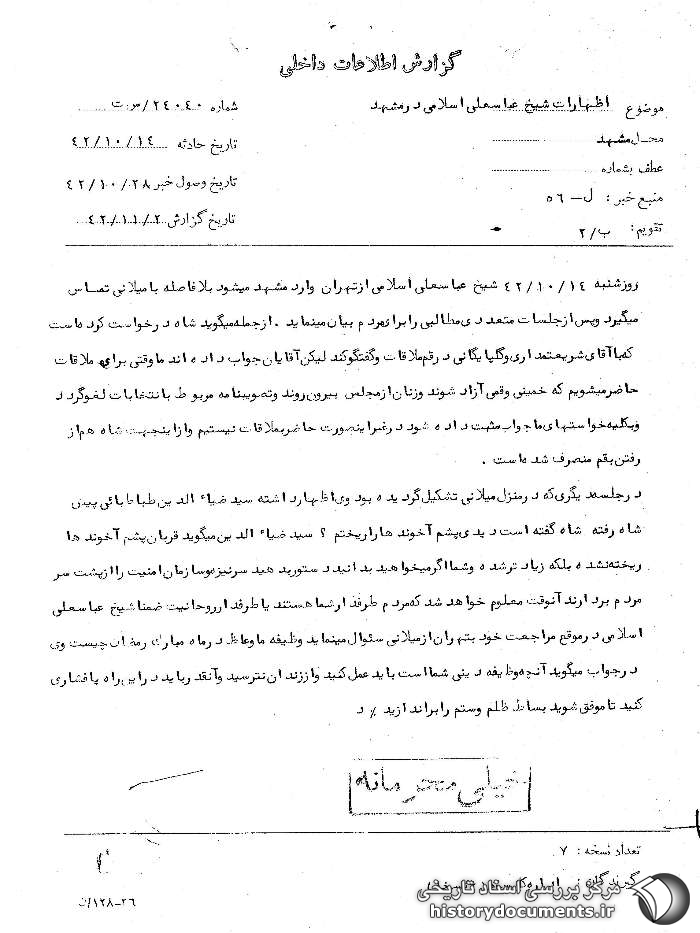 گزارش اطلاعات داخلی
موضوع اظهارات شیخ عباسعلی اسلامی در مشهد
شماره ۲۴۰۴۰/س.ت
محل مشهد
تاریخ حادثه ۴۲/۱۰/۱۴
عطف بشماره
تاریخ وصول خبر ۴۲/۱۰/۲۸
منبع خبر: ل-۵۶
تاریخ گزارش ۴۲/۱۱/۲
تقویم: ب/۲
روزشنبه ۴۲/۱۰/۱۴ شیخ عباسعلی اسلامی ازتهران وارد مشهد میشود بلافاصله با میلانی تماس
میگیرد وپس ازجلسات متعددی مطالبی رابرای مردم بیان مینماید . ازجمله میگوید شاه درخواست کرده است
که با آقای شریعتمداری وگلپایگانی درقم ملاقات وگفتگو کند لیکن آقایان جواب داده اند ما وقتی برای ملاقات
حاضر میشویم که خمینی وقمی آزاد شوند وزنان ازمجلس بیرون روند وتصویبنامه مربوط بانتخابات لغو گردد
وبکلیه خواستهای ما جواب مثبت داده شود درغیر اینصورت حاضر بملاقات نیستیم وازاینجهت شاه هم از
رفتن بقم منصرف شده است .
درجلسه دیگری که درمنزل میلانی تشکیل گردیده بود وی اظهار داشته سید ضیاء الدین طباطبائی پیش
شاه رفته شاه گفته است دیدی پشم آخوند ها را ریختم ؟ سید ضیاء الدین میگوید قربان پشم آخوند ها
ریخته نشده بلکه زیاد تر شده وشما اگر میخواهید بدانید دستور دهید سرنیزه وسازمان امنیت را از پشت سر
مردم بردارند آنوقت معلوم خواهد شد که مردم طرفدار شما هستند یا طرفدار روحانیت ضمنا شیخ عباسعلی
اسلامی درموقع مراجعت خود بتهران از میلانی سئوال مینماید وظیفه ما وعاظ در ماه مبارک رمضان چیست وی
درجواب میگوید آنچه وظیفه دینی شما است باید عمل کنید واززندان نترسید وآنقدر باید دراین راه پافشاری
کنید تا موفق شوید بساط ظلم وستم را براندازید ٪ د
خیلی محرمانه
تعداد نسخه : ۷
گیرندگان :
۱۲۸/ت-۲۶
مرکز بررسی اسناد تاریخی
historydocuments.ir